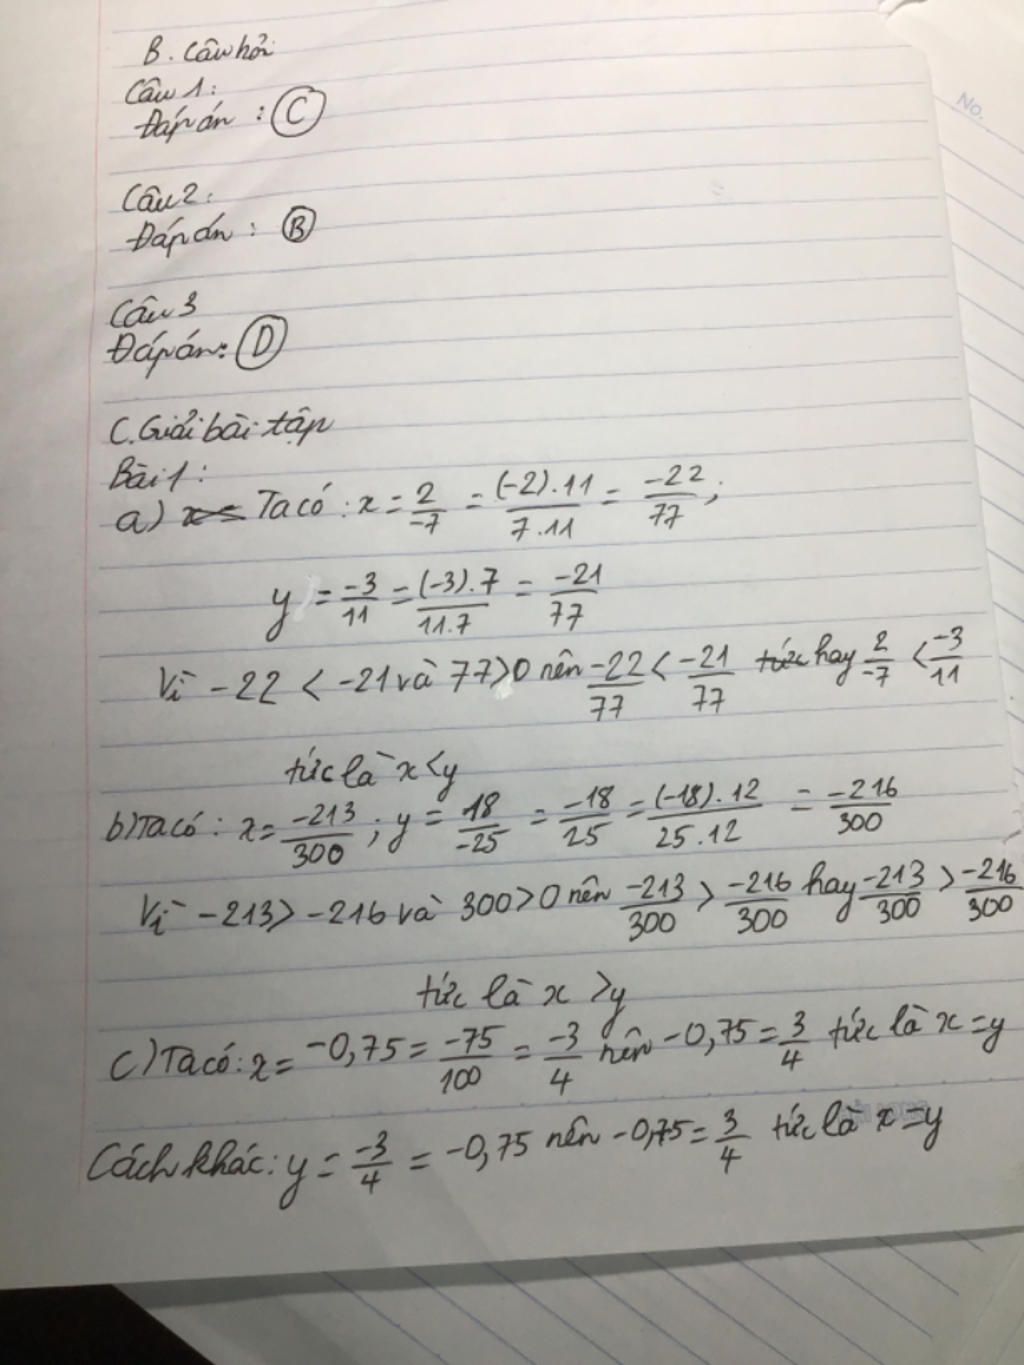 No.
B. Câu hỏi
Câu 1:
Đáp án : C
Câu 2:
Đáp án : B
Câu 3
Đáp án: D
C. Giải bài tập
Bài 1:
a) x= Ta có : x = 2/-7 = (-2).11/7.11 = -22/77 ;
y = -3/11 = (-3).7/11.7 = -21/77
Vì -22 < -21 và 77>0 nên -22/77 < -21/77 tức hay 2/-7 < -3/11
tức là x<y
b) Ta có : x = -213/300 ; y = 18/-25 = -18/25 = (-18).12/25.12 = -216/300
Vì -213 > -216 và 300>0 nên -213/300 > -216/300 hay -213/300 > -216/300
tức là x >y
c) Ta có: x = -0,75 = -75/100 = -3/4 nên -0,75 = 3/4 tức là x = y
Cách khác: y = -3/4 = -0,75 nên -0,75 = 3/4 tức là x = y